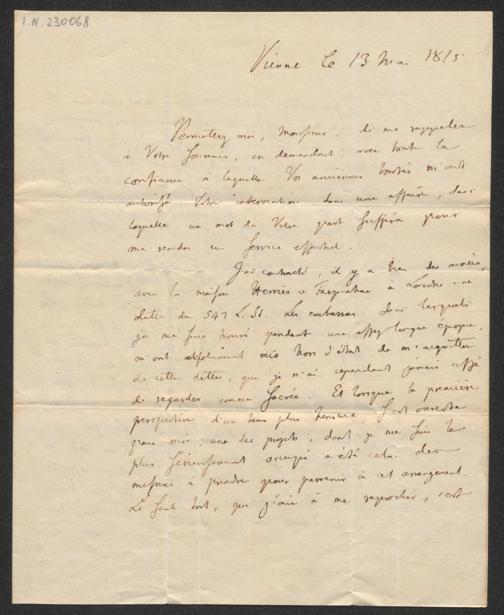 I.N. 230068
Vienne le 13 Mai 1815.
Permettez moi, Monsieur, de me rappeler
à Votre souvenir, en demandant avec toute la
confiance à laquelle Vos anciennes bontés m'ont
autorisé, Votre intervention dans une affaire, dans
laquelle un mot de Votre part suffira pour
me rendre un service essentiel.
J'ai contracté, il y a bien des années,
avec la maison Herries & Farquhar à Londres une
dette de 542 L. St. Les embarras dans lesquels
je me suis trouvé pendant une assez longue époque,
m'ont absolument mis hors d'état de m'acquitter
de cette dette, que je n'ai cependant jamais cessé
de regarder comme sacrée. Et lorsque la première
perspective d'un tems plus heureux s'est ouverte
pour moi, un des projets, dont je me suis le
plus sérieusement occupé a été celui des
mesures à prendre pour parvenir à cet arrangement.
Le seul tort, que j'aie à me reprocher, c'est